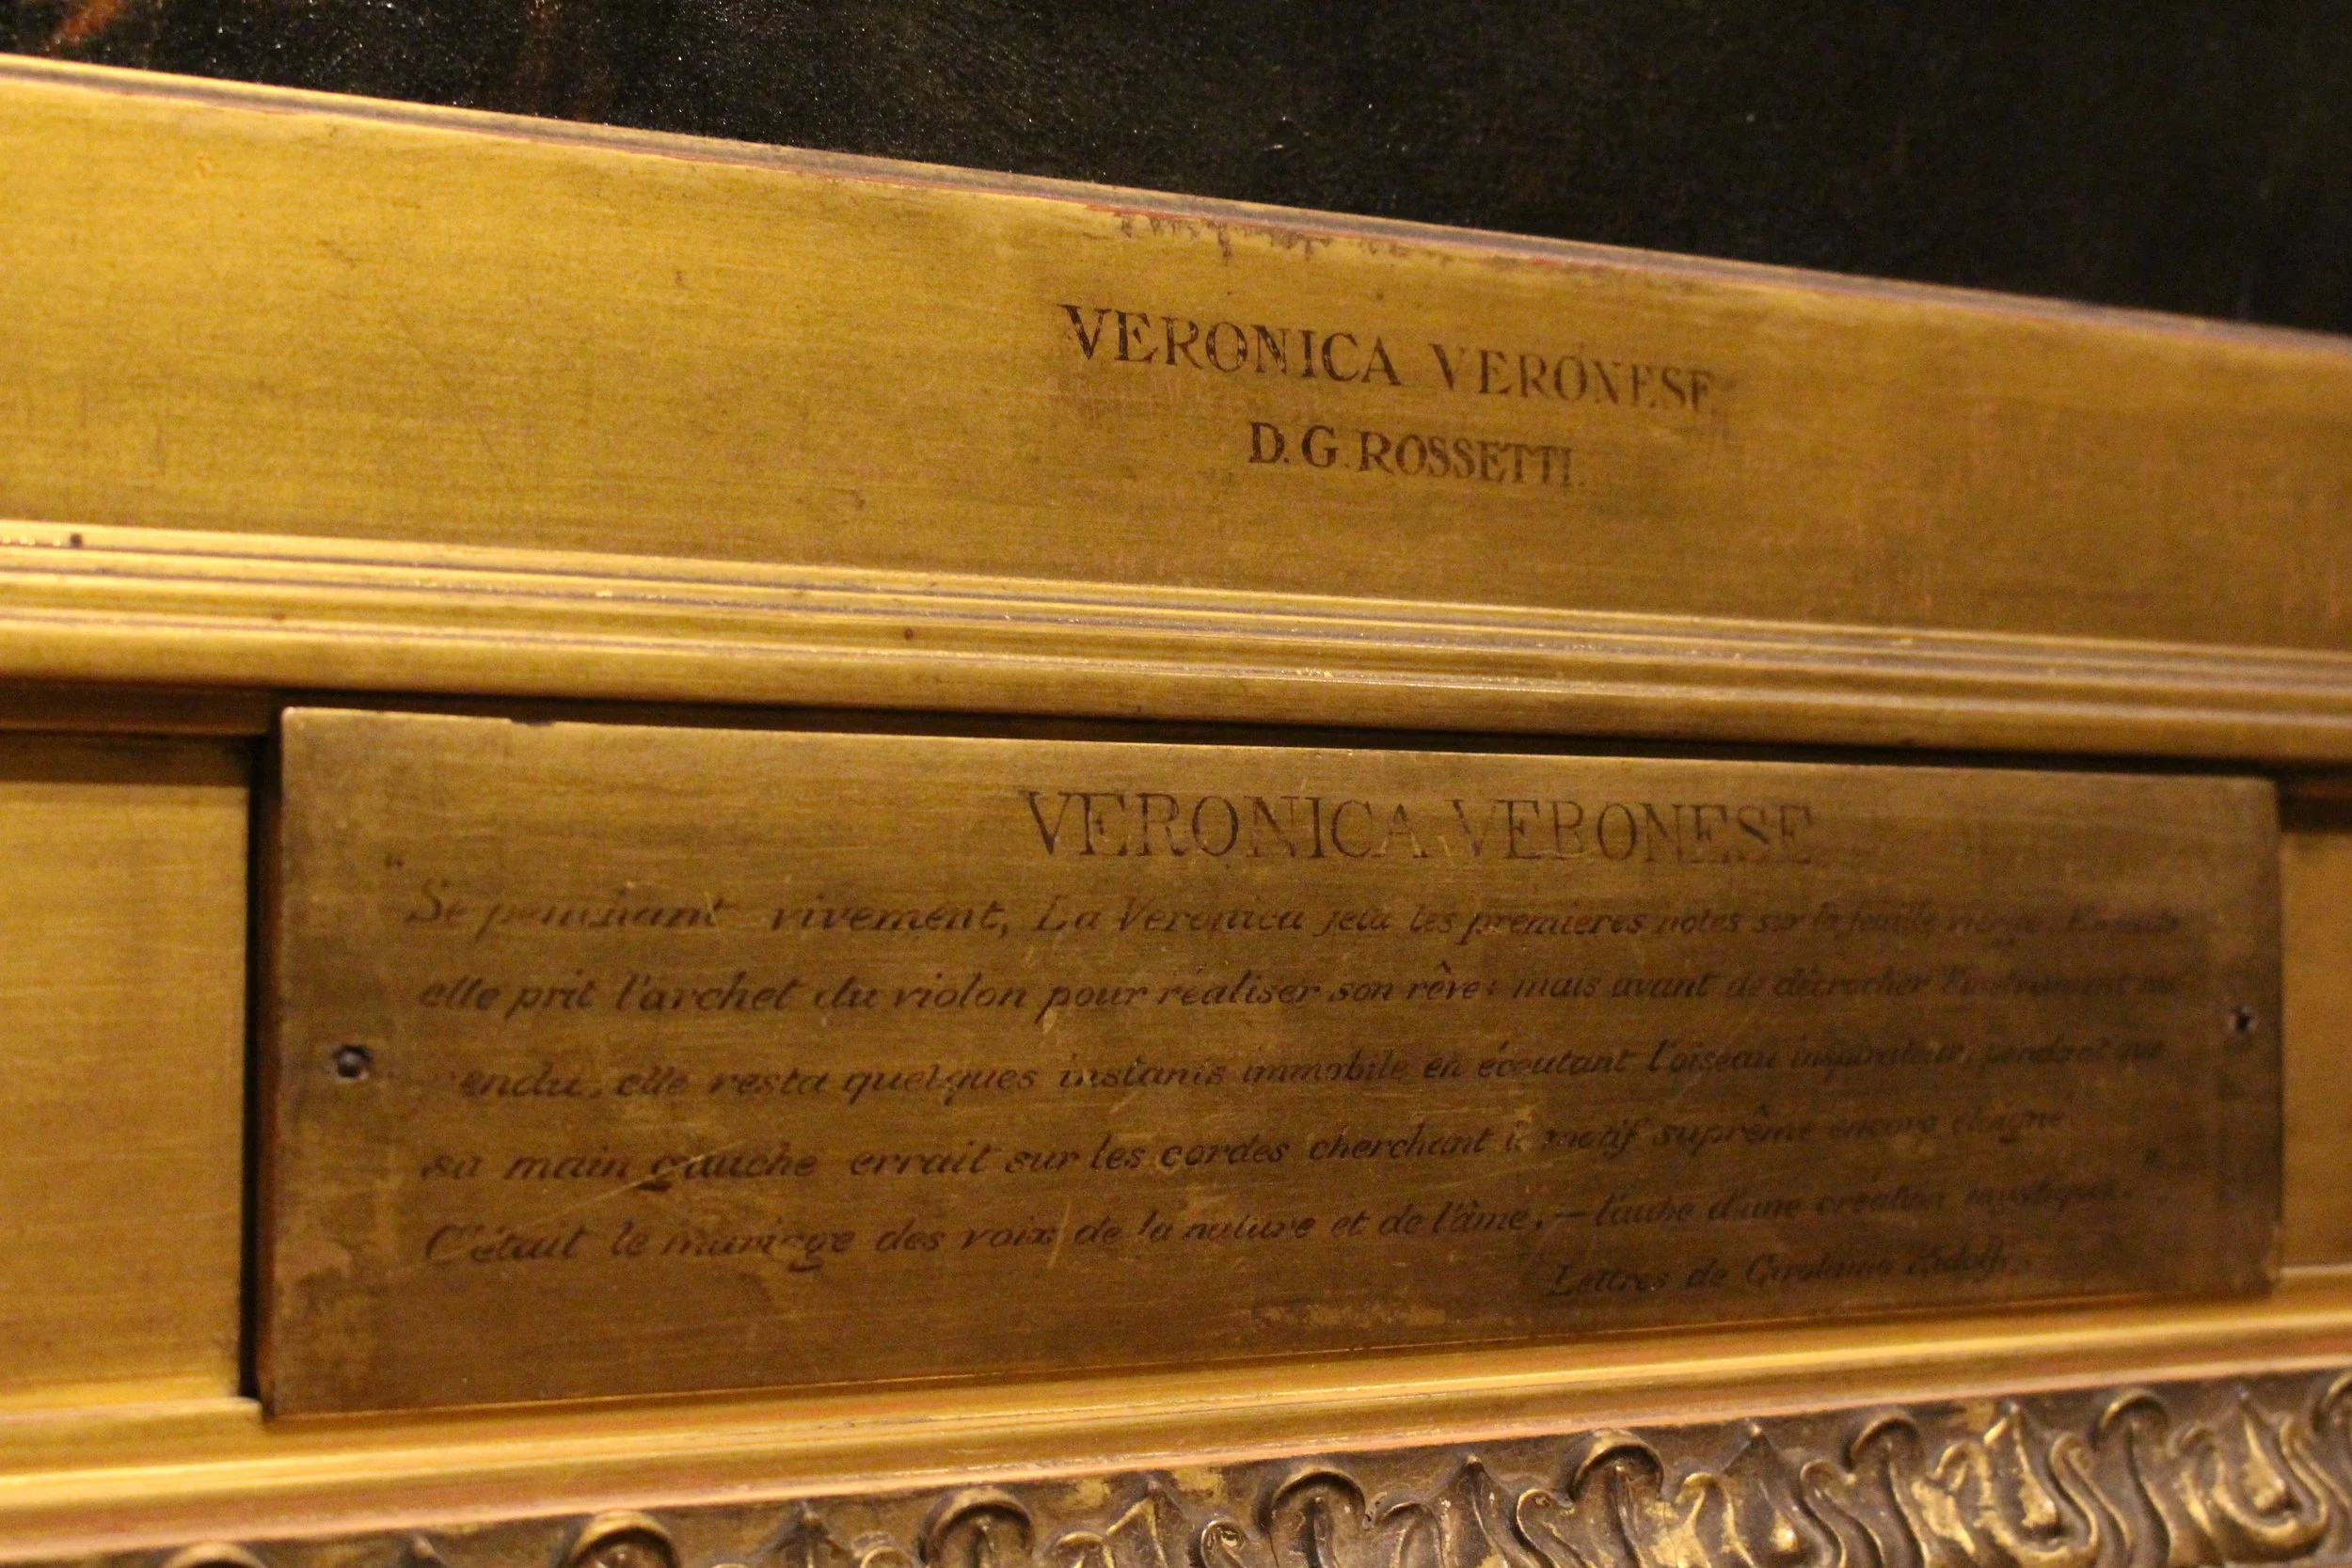 VERONICA VERONESE
D. G. ROSSETTI.
VERONICA VERONESE
"Se penchant vivement, La Veronica jeta les premieres notes sur la feuille vierge. Ensuite
elle prit l'archet du violon pour réaliser son rêve: mais avant de décrocher l'instrument sus-
pendu, elle resta quelques instants immobile en écoutant l'oiseau inspirateur, pendant que
sa main gauche errait sur les cordes cherchant le motif suprême encore éloigné.
C'était le mariage des voix de la nature et de l'âme,—l'aube d'une création mystique."
Lettres de Girolamo Ridolfi.